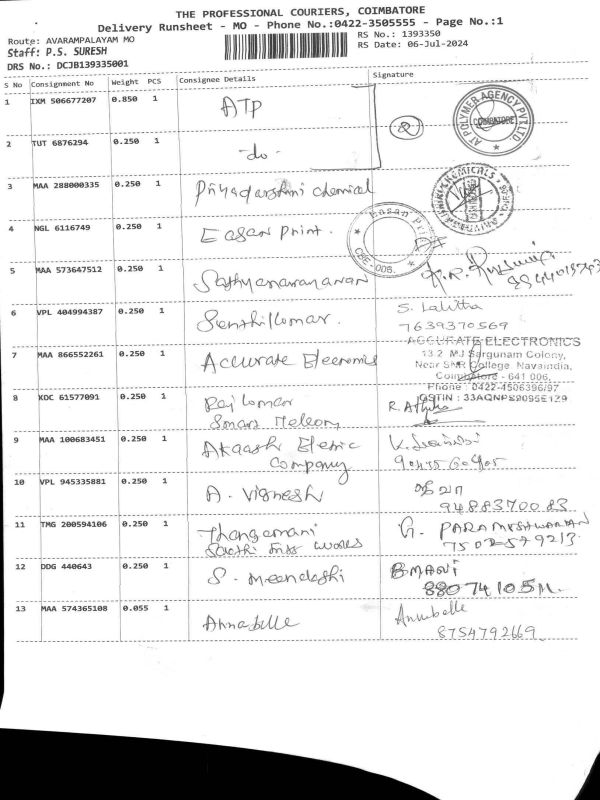 THE PROFESSIONAL COURIERS, COIMBATORE
Delivery Runsheet - MO - Phone No.:0422-3505555 - Page No.:1
Route: AVARAMPALAYAM MO
RS No.: 1393350
Staff: P.S. SURESH
RS Date: 06-Jul-2024
DRS No.: DCJB139335001
S No Consignment No Weight PCS Consignee Details Signature
1 IXM 506677207 0.850 1 ATP
AT POLYMER AGENCY PVT LTD
COIMBATORE
2 TUT 6876294 0.250 1 -do-
3 MAA 288000335 0.250 1 Priyadarshini chemical
4 NGL 6116749 0.250 1 Easan Print.
Easan
CBE-006.
5 MAA 573647512 0.250 1 Sathyanarayanan
6 VPL 404994387 0.250 1 Senthilkumar. S. Lalitha
7639370569
7 MAA 866552261 0.250 1 Accurate Elecronics
ACCURATE ELECTRONICS
13.2 MJ Sargunam Colony,
Near SNR College Navaindia,
Coimbatore - 641 006,
Phone : 0422-4506396/97
GSTIN :
8 KDC 61577091 0.250 1 Raj kumar
R.
9 MAA 100683451 0.250 1 Akaash Eletric
Company
10 VPL 945335881 0.250 1 A. Vignesh
9488370083
11 TMG 200594106 0.250 1 Thangamani
works
G. PARAMESHWARAN
7502579213
12 DDG 440643 0.250 1 S. meenakshi
BMANI
13 MAA 574365108 0.055 1 Annabelle
Annabelle
8754792669